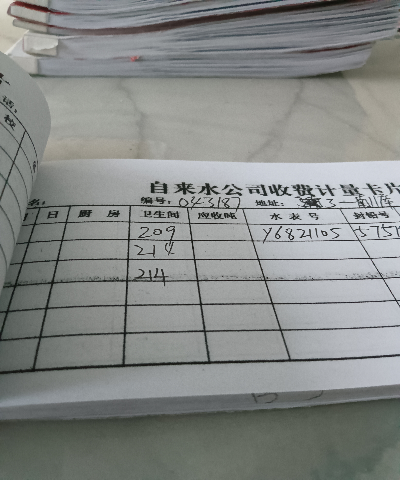 自来水公司收费计量卡片
名: 编号: 043187 地址:
日 厨房 卫生间 应收吨 水表号 封铅号
209 Y6821105 5751
214
214